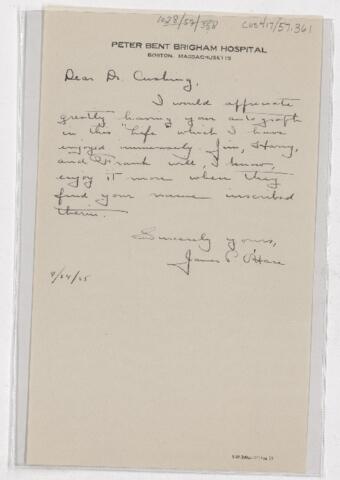 1028/52/358
CUS417/57.361
PETER BENT BRIGHAM HOSPITAL
BOSTON, MASSACHUSETTS
Dear Dr. Cushing,
I would appreciate
greatly having your autograph
in this "Life" which I have
enjoyed immensely. Jim, Harry,
and Frank will, I know,
enjoy it more when they
find your name inscribed
therin.
Sincerely yours,
James P. O'Hare
/24/25